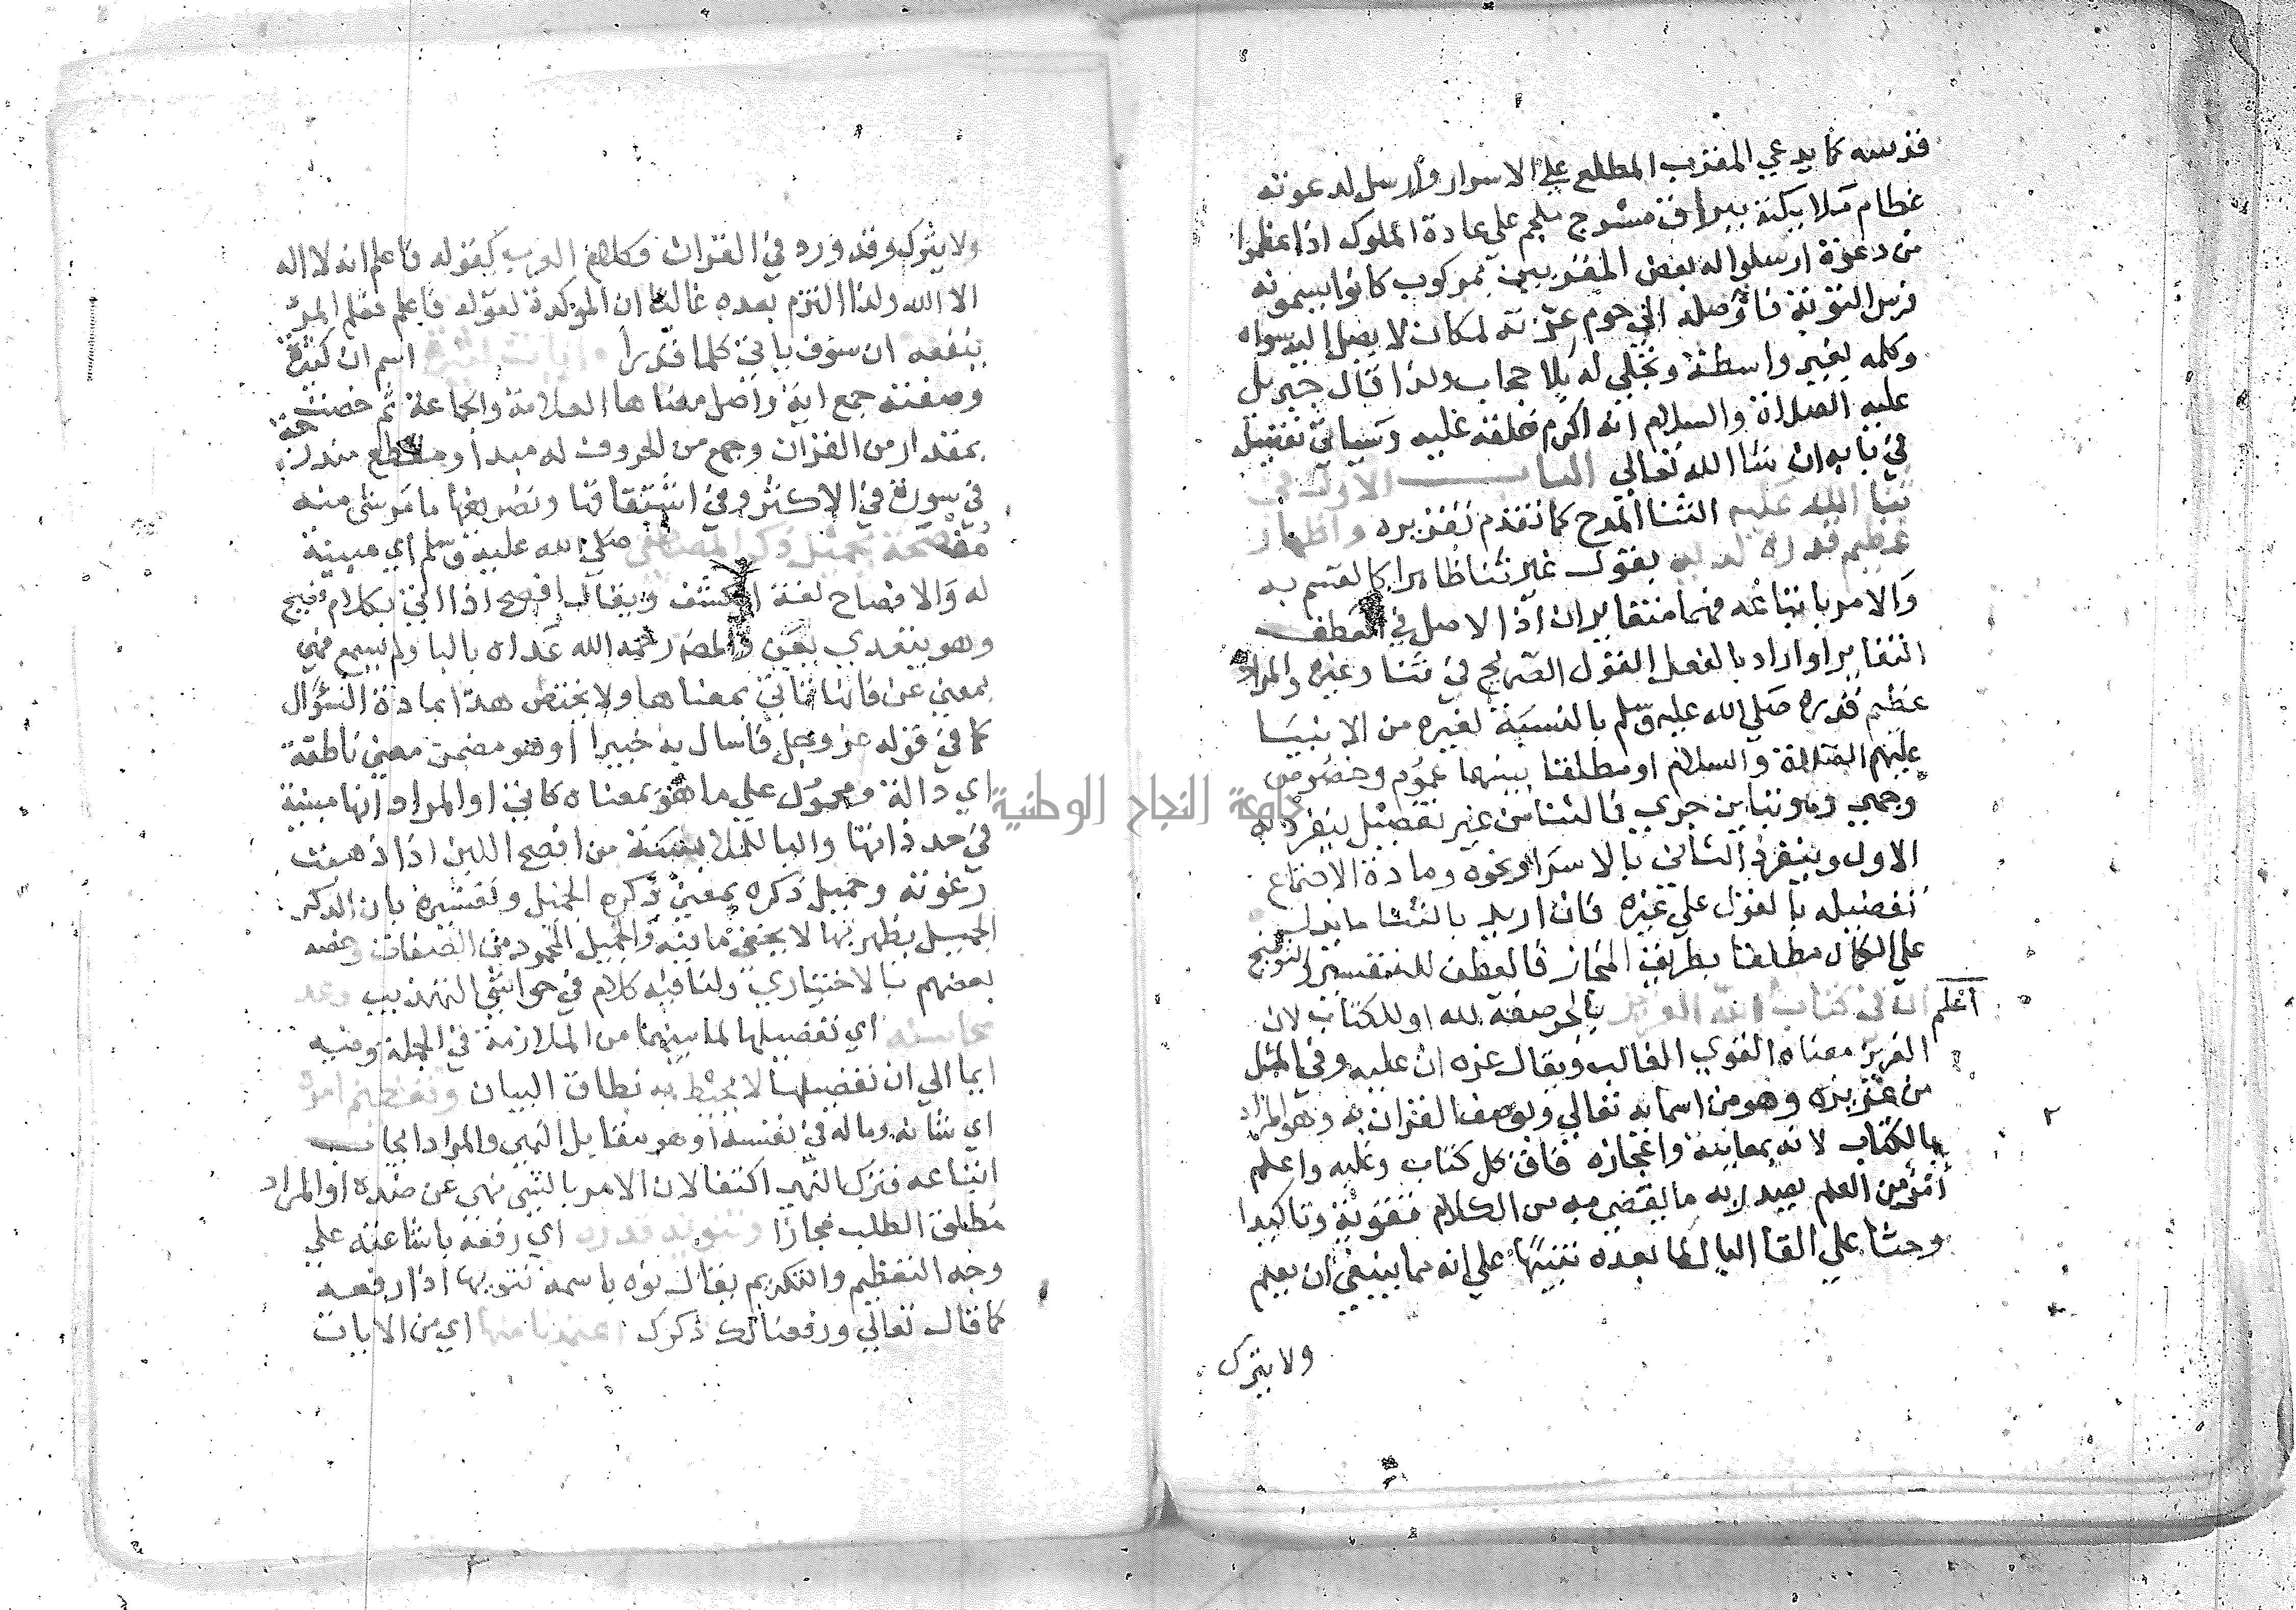 قدسه كما يدعي المقرب المطلع علي الاسرار وارسل لدعوته
عظام ملايكته ببراق مسرج ملجم علي عادة الملوك اذا عظموا
من دعوة ارسلوا له بعض المقربين بمركوب كانوا يسمونه
فرس النوبة فاوصله الي حرم عزته لمكان لا يصل اليه سواه
وكلمه بغير واسطة وتجلي له بلا حجاب ولذا قال جبريل
عليه الصلاة والسلام انه اكرم خلقه عليه وسياتي تفصيله
في بابه ان شا الله تعالي الباب الاول في
ثنا الله عليه الثنا المدح كما تقدم تقريره واظهار
عظيم قدره لديه بقوله غير ثنا ظاهرا كالقسم به
والامر باتباعه فهما متقايران اذ الاصل في العطف
التغاير او اراد بالفعل القول الصريح في ثنا وغيره والمراد
عظم قدره صلي الله عليه وسلم بالنسبة لغيره من الانبيا
عليهم الصلاة والسلام او مطلقا بينهما عموم وخصوص
وجهي وهو تباين جزي فالثنا من غير تفضيل ينفرد به
الاول وينفرد الثاني بالاسرا ونحوه ومادة الاجتماع
تفضيله بالقول علي غيره فان اريد بالثنا ما يدل
علي الكمال مطلقا بطريق المجاز فالعطف للتفسير والتوضيح
اعلم ان في كتاب الله العزيز بالجر صفة لله او للكتاب لان
العزيز معناه القوي الغالب ويقال عزه ان غلبه وفي المثل
من عز بزه وهو من اسمايه تعالي ويوصف القران به وهو المراد
بالكتاب لانه بمعانيه واعجازه فاق كل كتاب وغلبه واعلم
امر من العلم يصدر به ما يقتضي به من الكلام تقوية وتاكيدا
وحثا علي القا البال لما بعده تنبيها علي انه مما ينبغي ان يعلم
ولا يترك
ولا يترك وقد ورد في القران وكلام العرب كقوله فاعلم انه لا اله
الا الله ولذا التزم بعده غالبا ان الموكدة لقوله فاعلم فعلم المرء
ينفعه ان سوف ياتي كلما قدرا ايات كثيرة اسم ان كثيرة
وصفته جمع اية واصل معناها العلامة والجماعة ثم خصت
بمقدار من القرآن وجمع من الحروف له مبدا ومقطع مندرجة
في سورة في الاكثر وفي اشتقاقها وتصريفها ما مر شي منه
مفصحة بجميل ذكر المصطفي صلي الله عليه وسلم اي مبينة
له والافصاح لغة الكشف ويقال افصح اذا اتي بكلام فصيح
وهو يتعدي بعن والمص رحمه الله عداه بالبا ولم يسمع فهي
بمعني عن فانها تاتي بمعناها ولا يختص هذا بمادة السؤال
كما في قوله عز وجل فاسال به خبيرا او هو مضمن معني ناطقة
اي دالة ومحمول علي ما هو بمعناه كاتي او المراد انها مبينة
في حد ذاتها والبا للملابسة من افصح اللبن اذا ذهبت
رغوته وجميل ذكره بمعني ذكره الجميل وتفسيره بان الذكر
الجميل يظهر بها لا يخفي ما فيه والجميل المحمود من الصفات وخصه
بعضهم بالاختياري ولنا فيه كلام في حواشي التهذيب وعد
محاسنه اي تفصيلها لما بينهما من الملازمة في الجملة وفيه
ايما الي ان تفصيلها لا يحيط به نطاق البيان وتعظيم امره
اي شانه وماله في نفسه او هو يقابل النهي والمراد ايجاب
اتباعه فترك النهي اكتفا لان الامر بالشي نهي عن ضده او المراد
مطلق الطلب مجازا وتنويه قدره اي رفعه باشاعته علي
وجه التعظيم والتكريم يقال نوه باسمه تنويها اذا رفعه
كما قال تعالي ورفعنا لك ذكرك اعتمدنا منها اي من الايات
جامعة النجاح الوطنية